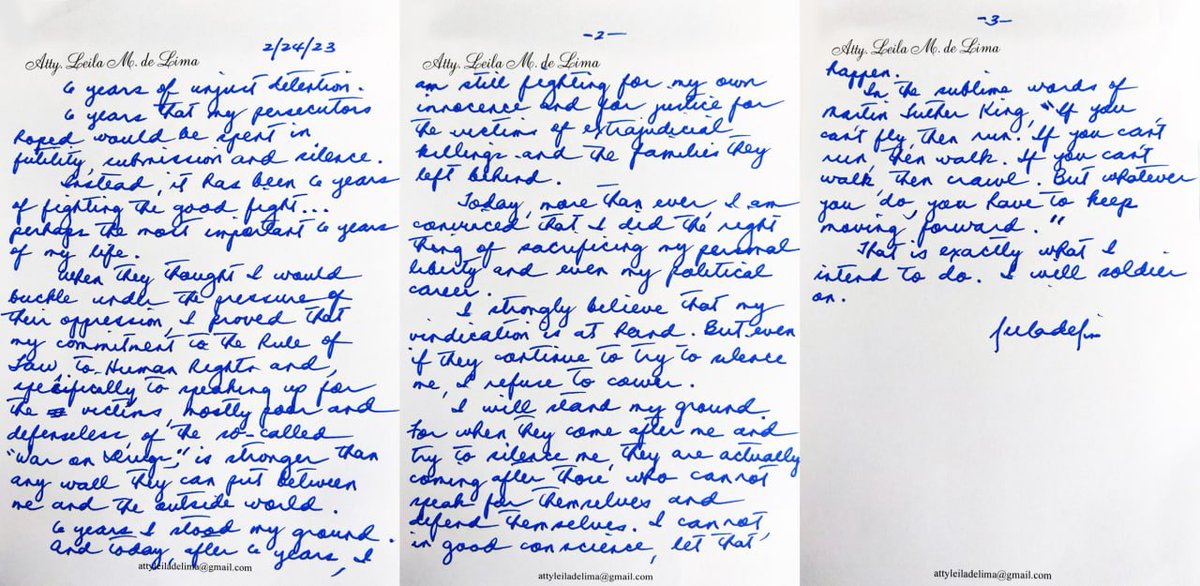 2/24/23
Atty. Leila M. de Lima
6 years of unjust detention.
6 years that my persecutors
hoped would be spent in
futility, submission and silence.
Instead, it has been 6 years
of fighting the good fight...
perhaps the most important 6 years
of my life.
When they thought I would
buckle under the pressure of
their oppression, I proved that
my commitment to the Rule of
Law, to Human Rights and,
specifically to speaking up for
the victims, mostly poor and
defenseless, of the so-called
"war on drugs," is stronger than
any wall they can put between
me and the outside world.
6 years I stood my ground.
And today, after 6 years, I
attyleiladelima@gmail.com
-2-
Atty. Leila M. de Lima
am still fighting for my own
innocence and for justice for
the victims of extrajudicial
killings and the families they
left behind.
Today, more than ever, I am
convinced that I did the right
thing of sacrificing my personal
liberty and even my political
career.
I strongly believe that my
vindication is at hand. But even
if they continue to try to silence
me, I refuse to cower.
I will stand my ground.
For when they come after me and
try to silence me, they are actually
coming after those who cannot
speak for themselves and
defend themselves. I cannot,
in good conscience, let that
attyleiladelima@gmail.com
-3-
Atty. Leila M. de Lima
happen.
In the sublime words of
Martin Luther King, "If you
can't fly, then run. If you can't
run, then walk. If you can't
walk, then crawl. But whatever
you do, you have to keep
moving forward."
That is exactly what I
intend to do. I will soldier
on.
attyleiladelima@gmail.com